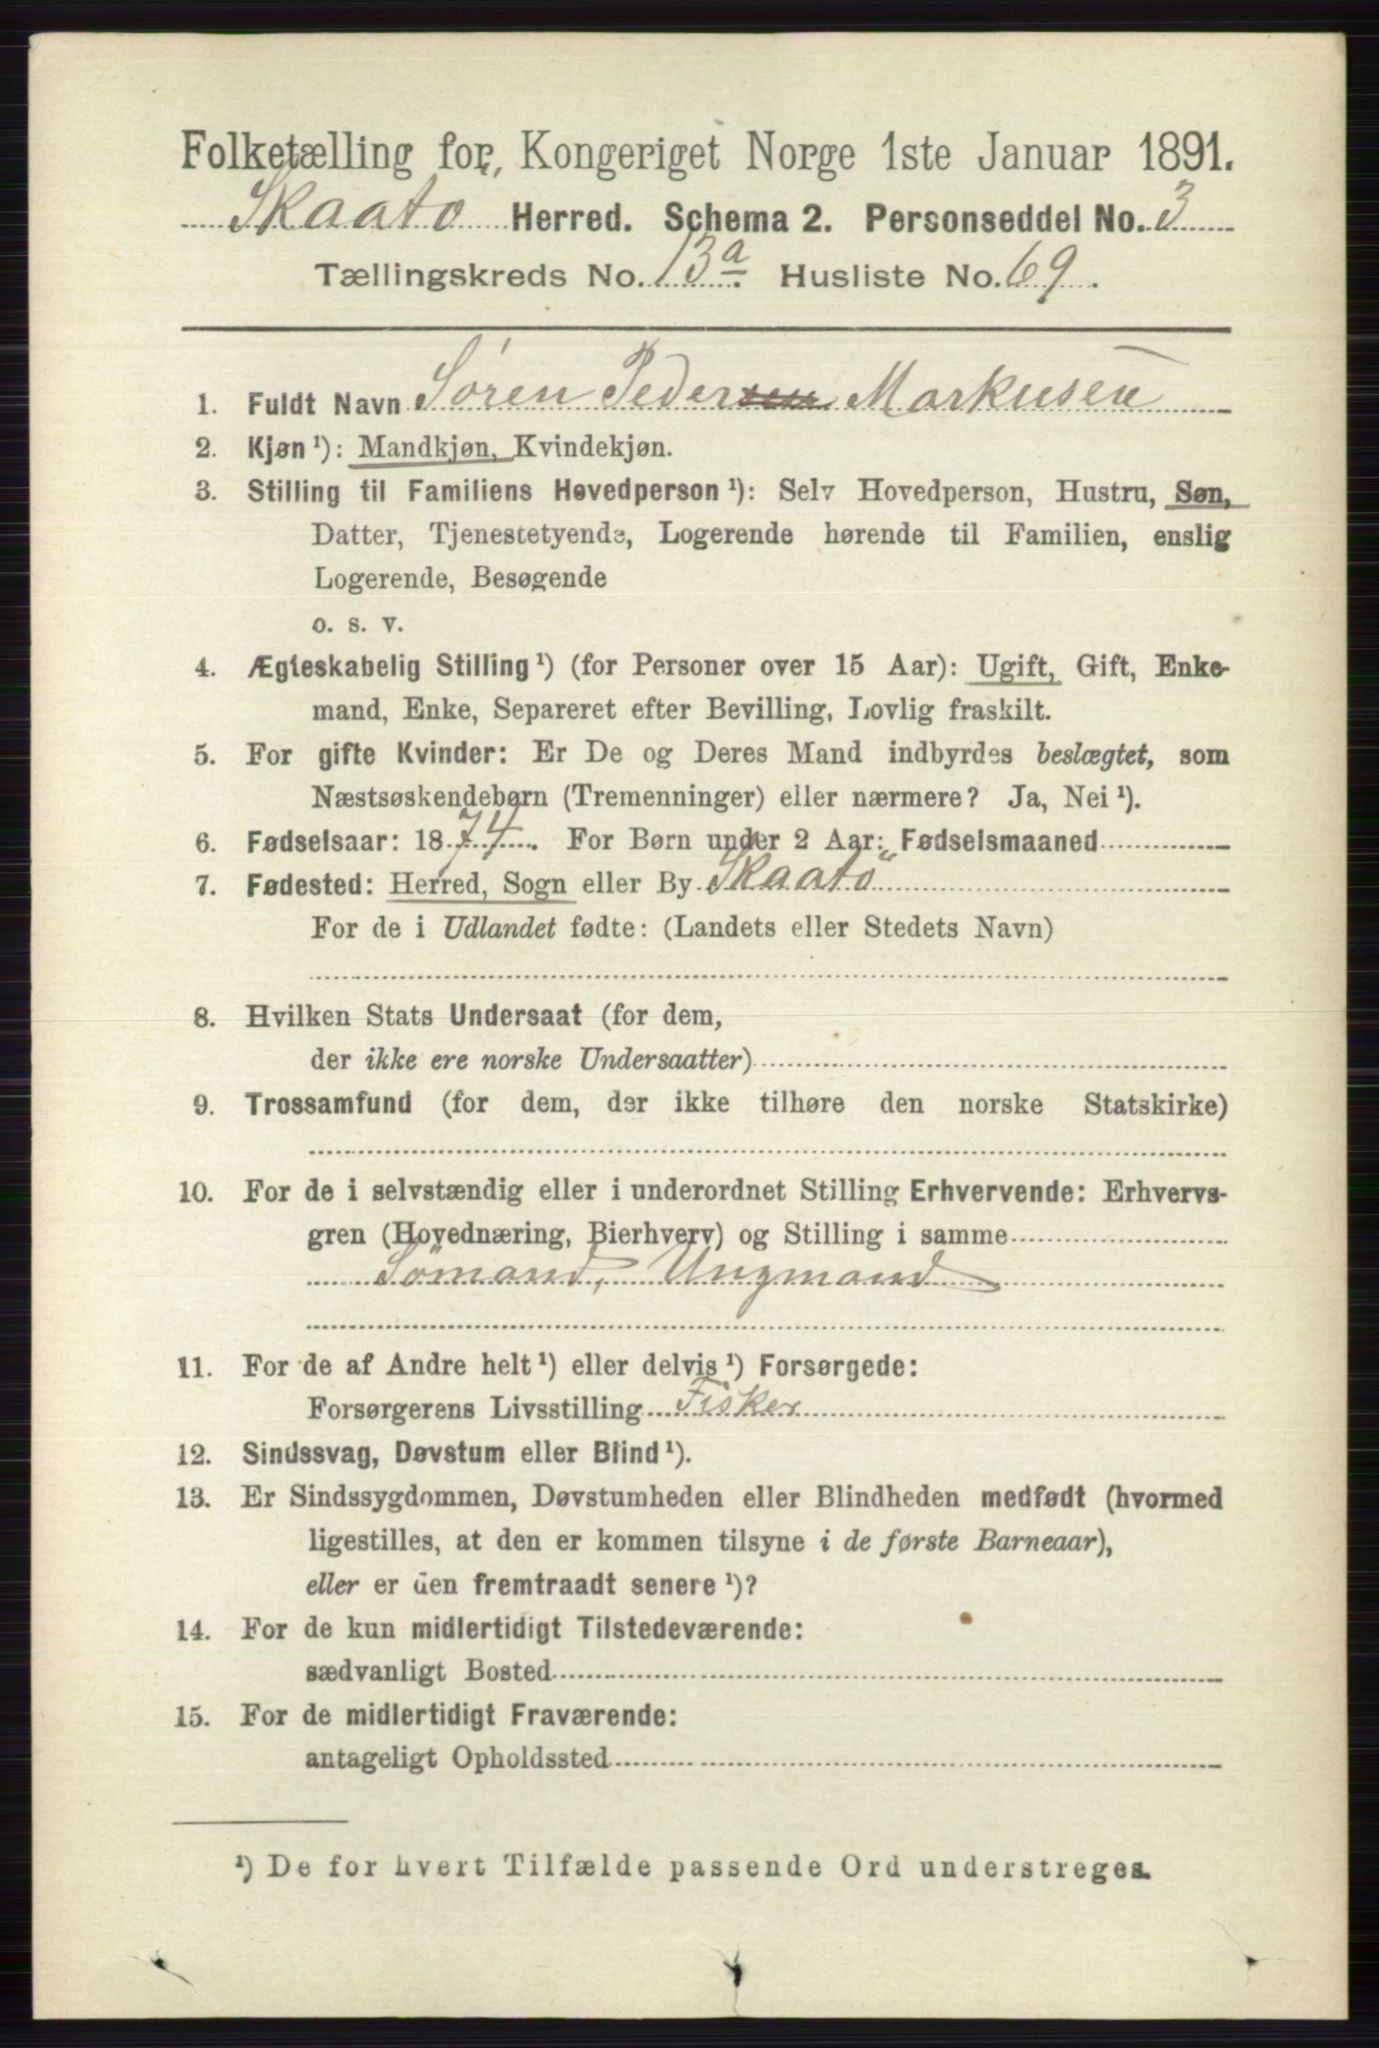 Folketælling for, Kongeriget Norge 1ste Januar 1891.
Skaatö Herred. Schema 2. Personseddel No. 3
Tællingskreds No. 13a. Husliste No. 69.
1. Fuldt Navn Sören Pedersen Markusen
2. Kjøn ¹): Mandkjøn, Kvindekjøn.
3. Stilling til Familiens Hovedperson ¹): Selv Hovedperson, Hustru, Søn,
Datter, Tjenestetyende, Logerende hørende til Familien, enslig
Logerende, Besøgende
o. s. v.
4. Ægteskabelig Stilling ¹) (for Personer over 15 Aar): Ugift, Gift, Enke-
mand, Enke, Separeret efter Bevilling, Lovlig fraskilt.
5. For gifte Kvinder: Er De og Deres Mand indbyrdes beslægtet, som
Næstsøskendebørn (Tremenninger) eller nærmere? Ja, Nei ¹).
6. Fødselsaar: 1874. For Børn under 2 Aar: Fødselsmaaned
7. Fødested: Herred, Sogn eller By Skaatö
For de i Udlandet fødte: (Landets eller Stedets Navn)
8. Hvilken Stats Undersaat (for dem,
der ikke ere norske Undersaatter)
9. Trossamfund (for dem, der ikke tilhøre den norske Statskirke)
10. For de i selvstændig eller i underordnet Stilling Erhvervende: Erhvervs-
gren (Hovednæring, Bierhverv) og Stilling i samme
Sömand, Ungmand
11. For de af Andre helt ¹) eller delvis ¹) Forsørgede:
Forsørgerens Livsstilling Fisker
12. Sindssvag, Døvstum eller Blind ¹).
13. Er Sindssygdommen, Døvstumheden eller Blindheden medfødt (hvormed
ligestilles, at den er kommen tilsyne i de første Barneaar),
eller er den fremtraadt senere ¹)?
14. For de kun midlertidigt Tilstedeværende:
sædvanligt Bosted
15. For de midlertidigt Fraværende:
antageligt Opholdssted
¹) De for hvert Tilfælde passende Ord understreges.